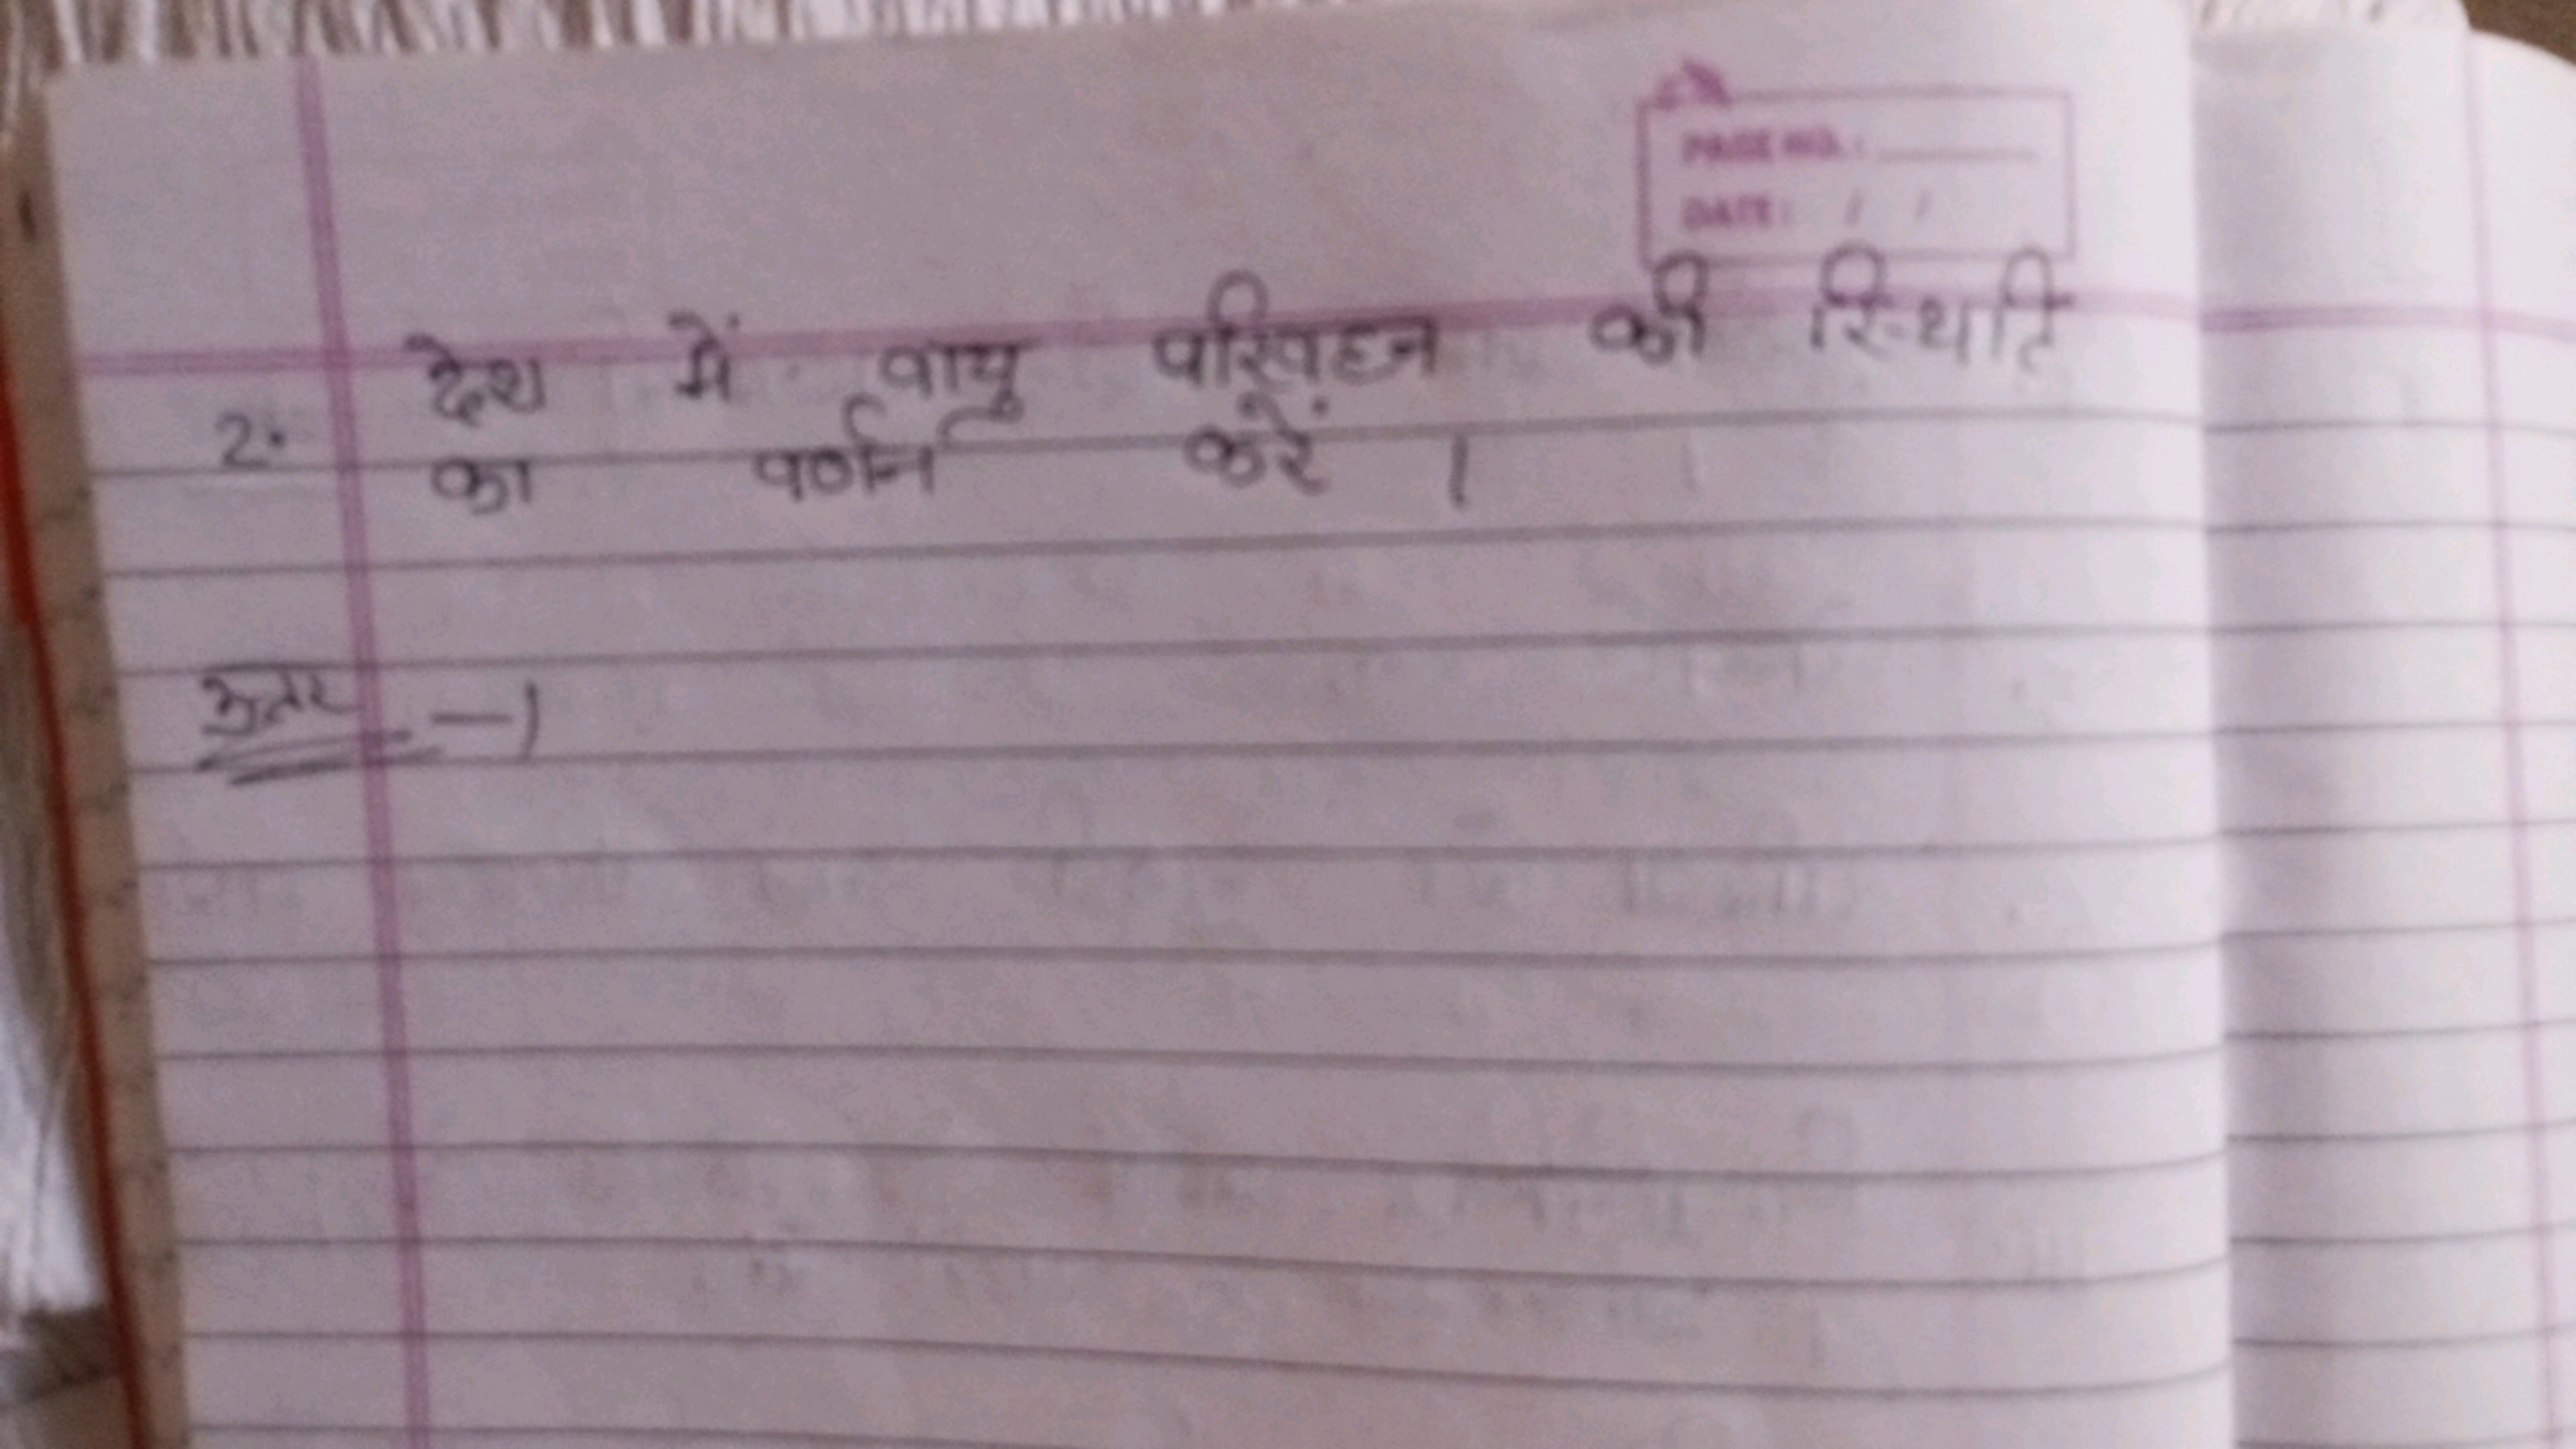 PAGE NO.:
DATE: / /
देश में वायु परिवहन की स्थिति
2. का वर्णन करें ।
उत्तर —)